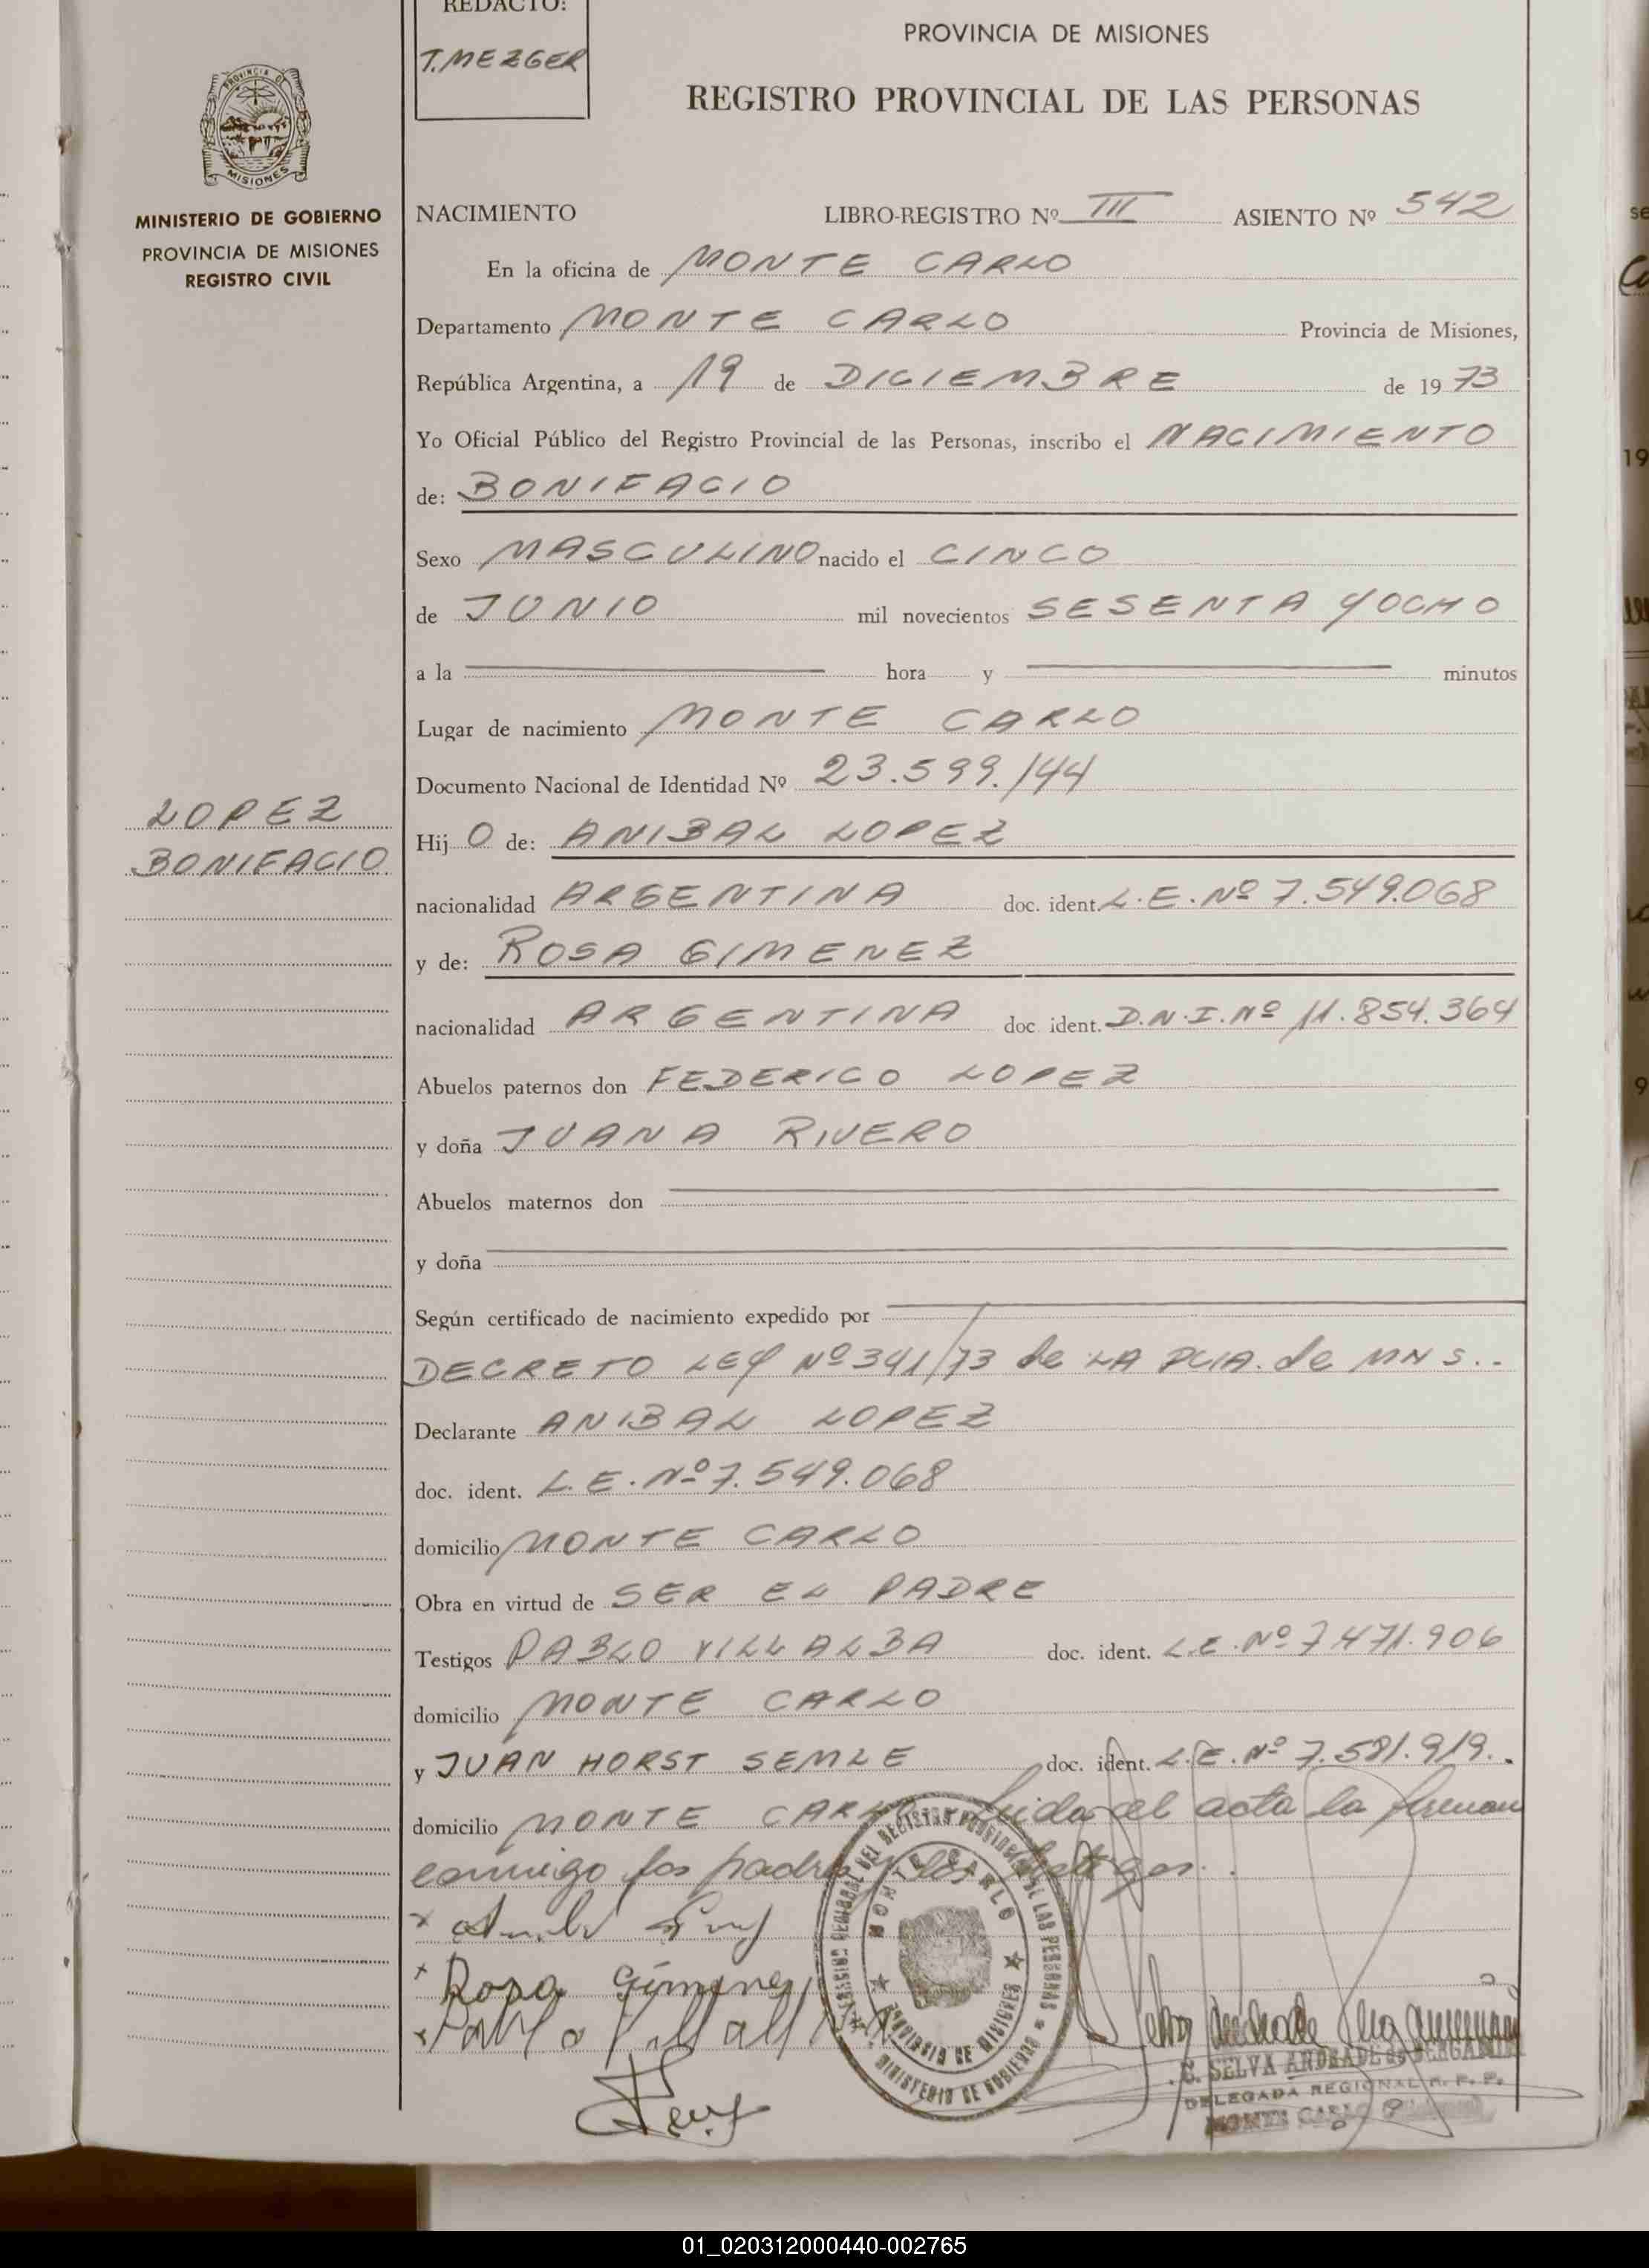 REDACTO:
T. MEZGER
PROVINCIA DE MISIONES
REGISTRO PROVINCIAL DE LAS PERSONAS
PROVINCIA DE
MISIONES
MINISTERIO DE GOBIERNO
PROVINCIA DE MISIONES
REGISTRO CIVIL
NACIMIENTO LIBRO-REGISTRO Nº III ASIENTO Nº 542
En la oficina de MONTE CARLO
Departamento MONTE CARLO Provincia de Misiones,
República Argentina, a 19 de DICIEMBRE de 1973
Yo Oficial Público del Registro Provincial de las Personas, inscribo el NACIMIENTO
de: BONIFACIO
Sexo MASCULINO nacido el CINCO
de JUNIO mil novecientos SESENTA Y OCHO
a la hora y minutos
Lugar de nacimiento MONTE CARLO
Documento Nacional de Identidad Nº 23.599.144
LOPEZ
BONIFACIO
Hijo de: ANIBAL LOPEZ
nacionalidad ARGENTINA doc. ident. L.E. Nº 7.549.068
y de: ROSA GIMENEZ
nacionalidad ARGENTINA doc. ident. D.N.I. Nº 11.854.364
Abuelos paternos don FEDERICO LOPEZ
y doña JUANA RIVERO
Abuelos maternos don
y doña
Según certificado de nacimiento expedido por
DECRETO LEY Nº 341/73 de LA PCIA. de MNS..
Declarante ANIBAL LOPEZ
doc. ident. L.E. Nº 7.549.068
domicilio MONTE CARLO
Obra en virtud de SER EL PADRE
Testigos PABLO VILLALBA doc. ident. L.E. Nº 7.471.906
domicilio MONTE CARLO
y JUAN HORST SEMLE doc. ident. L.E. Nº 7.581.919..
domicilio MONTE CARLO Leida el acta la firman
conmigo los padres y los testigos..
Rosa Gimenez
Pablo Villalba
REGISTRO PROVINCIAL DE LAS PERSONAS
MONTE CARLO
PROVINCIA DE MISIONES
MINISTERIO DE GOBIERNO
SELVA ANDRADE de BERGAMIN
DELEGADA REGIONAL R. P. P.
MONTE CARLO
01_020312000440-002765